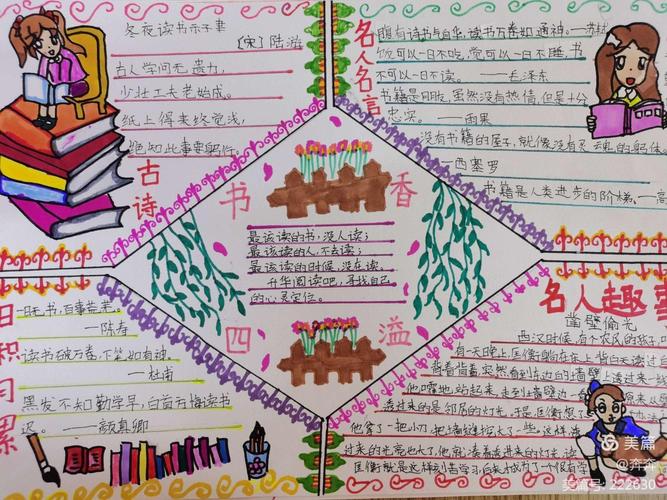 冬夜读书示子聿
(宋)陆游
古人学问无遗力,
少壮工夫老始成。
纸上得来终觉浅,
绝知此事要躬行。
古诗
名人名言
腹有诗书气自华,读书万卷始通神。——苏轼
饭可以一日不吃,觉可以一日不睡,书
不可以一日不读。——毛泽东
书籍是朋友,虽然没有热情,但是十分
忠实。——雨果
没有书籍的屋子,就像没有灵魂的躯体。
——西塞罗
书籍是人类进步的阶梯。——高
书香
四溢
最该读的书,没人读;
最该读的人,不去读;
最该读的时候,没在读。
升华阅读吧,寻找自己
的心灵定位。
日积月累
一日无书,百事荒芜。
——陈寿
读书破万卷,下笔如有神。
——杜甫
黑发不知勤学早,白首方悔读书
迟。——颜真卿
名人趣事
凿壁偷光
西汉时候,有个农民的孩子,叫
有一天晚上,匡衡躺在床上背白天读过
背着背着,突然看到东边的墙壁上透过来一
他嚯地站起来,走到墙壁边一看
透过来的是邻居的灯光,于是,匡衡想了
他拿了一把小刀,把墙缝挖大了一些。这样,
过来的光亮也大了,他就凑着透进来的灯光,读
匡衡就是这样刻苦学习,后来成为了一个很有学
美篇
@奔奔
美篇号:222630